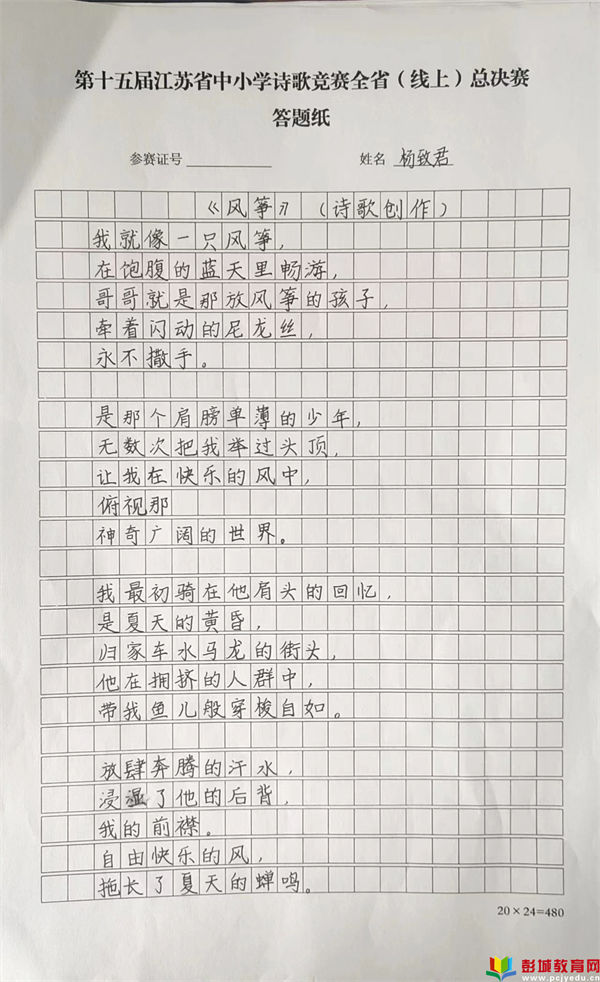 第十五届江苏省中小学诗歌竞赛全省（线上）总决赛
答题纸
参赛证号 姓名 杨致君
《风筝》（诗歌创作）
我就像一只风筝，
在饱腹的蓝天里畅游，
哥哥就是那放风筝的孩子，
牵着闪动的尼龙丝，
永不撒手。
是那个肩膀单薄的少年，
无数次把我举过头顶，
让我在快乐的风中，
俯视那
神奇广阔的世界。
我最初骑在他肩头的回忆，
是夏天的黄昏，
归家车水马龙的街头，
他在拥挤的人群中，
带我鱼儿般穿梭自如。
放肆奔腾的汗水，
浸湿了他的后背，
我的前襟。
自由快乐的风，
拖长了夏天的蝉鸣。
20×24=480
彭城教育网
www.pcjyedu.cn